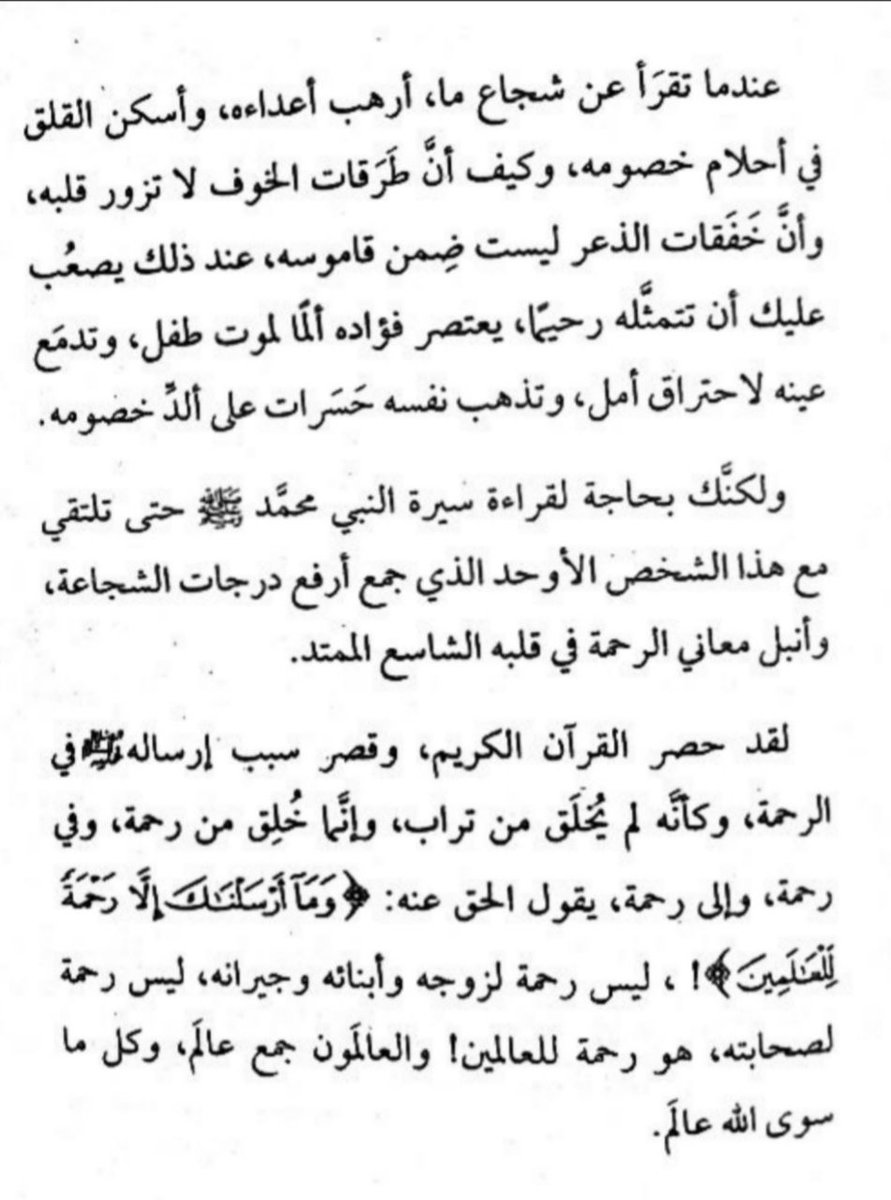 عندما تقرَأ عن شجاع ما، أرهب أعداءه، وأسكن القلق
في أحلام خصومه، وكيف أنَّ طَرَقات الخوف لا تزور قلبه،
وأنَّ خَفَقات الذعر ليست ضِمن قاموسه، عند ذلك يصعُب
عليك أن تتمثَّله رحيمًا، يعتصر فؤاده ألمًا لموت طفل، وتدمَع
عينه لاحتراق أمل، وتذهب نفسه حَسَرات على ألدِّ خصومه.
ولكنَّك بحاجة لقراءة سيرة النبي محمَّد ﷺ حتى تلتقي
مع هذا الشخص الأوحد الذي جمع أرفع درجات الشجاعة،
وأنبل معاني الرحمة في قلبه الشاسع الممتد.
لقد حصر القرآن الكريم، وقصر سبب إرساله ﷺ في
الرحمة، وكأنَّه لم يُخلَق من تراب، وإنَّما خُلِق من رحمة، وفي
رحمة، وإلى رحمة، يقول الحق عنه: ﴿وَمَآ أَرْسَلْنَٰكَ إِلَّا رَحْمَةً
لِّلْعَٰلَمِينَ﴾! ، ليس رحمة لزوجه وأبنائه وجيرانه، ليس رحمة
لصحابته، هو رحمة للعالمين! والعالَمون جمع عالَم، وكل ما
سوى الله عالَم.